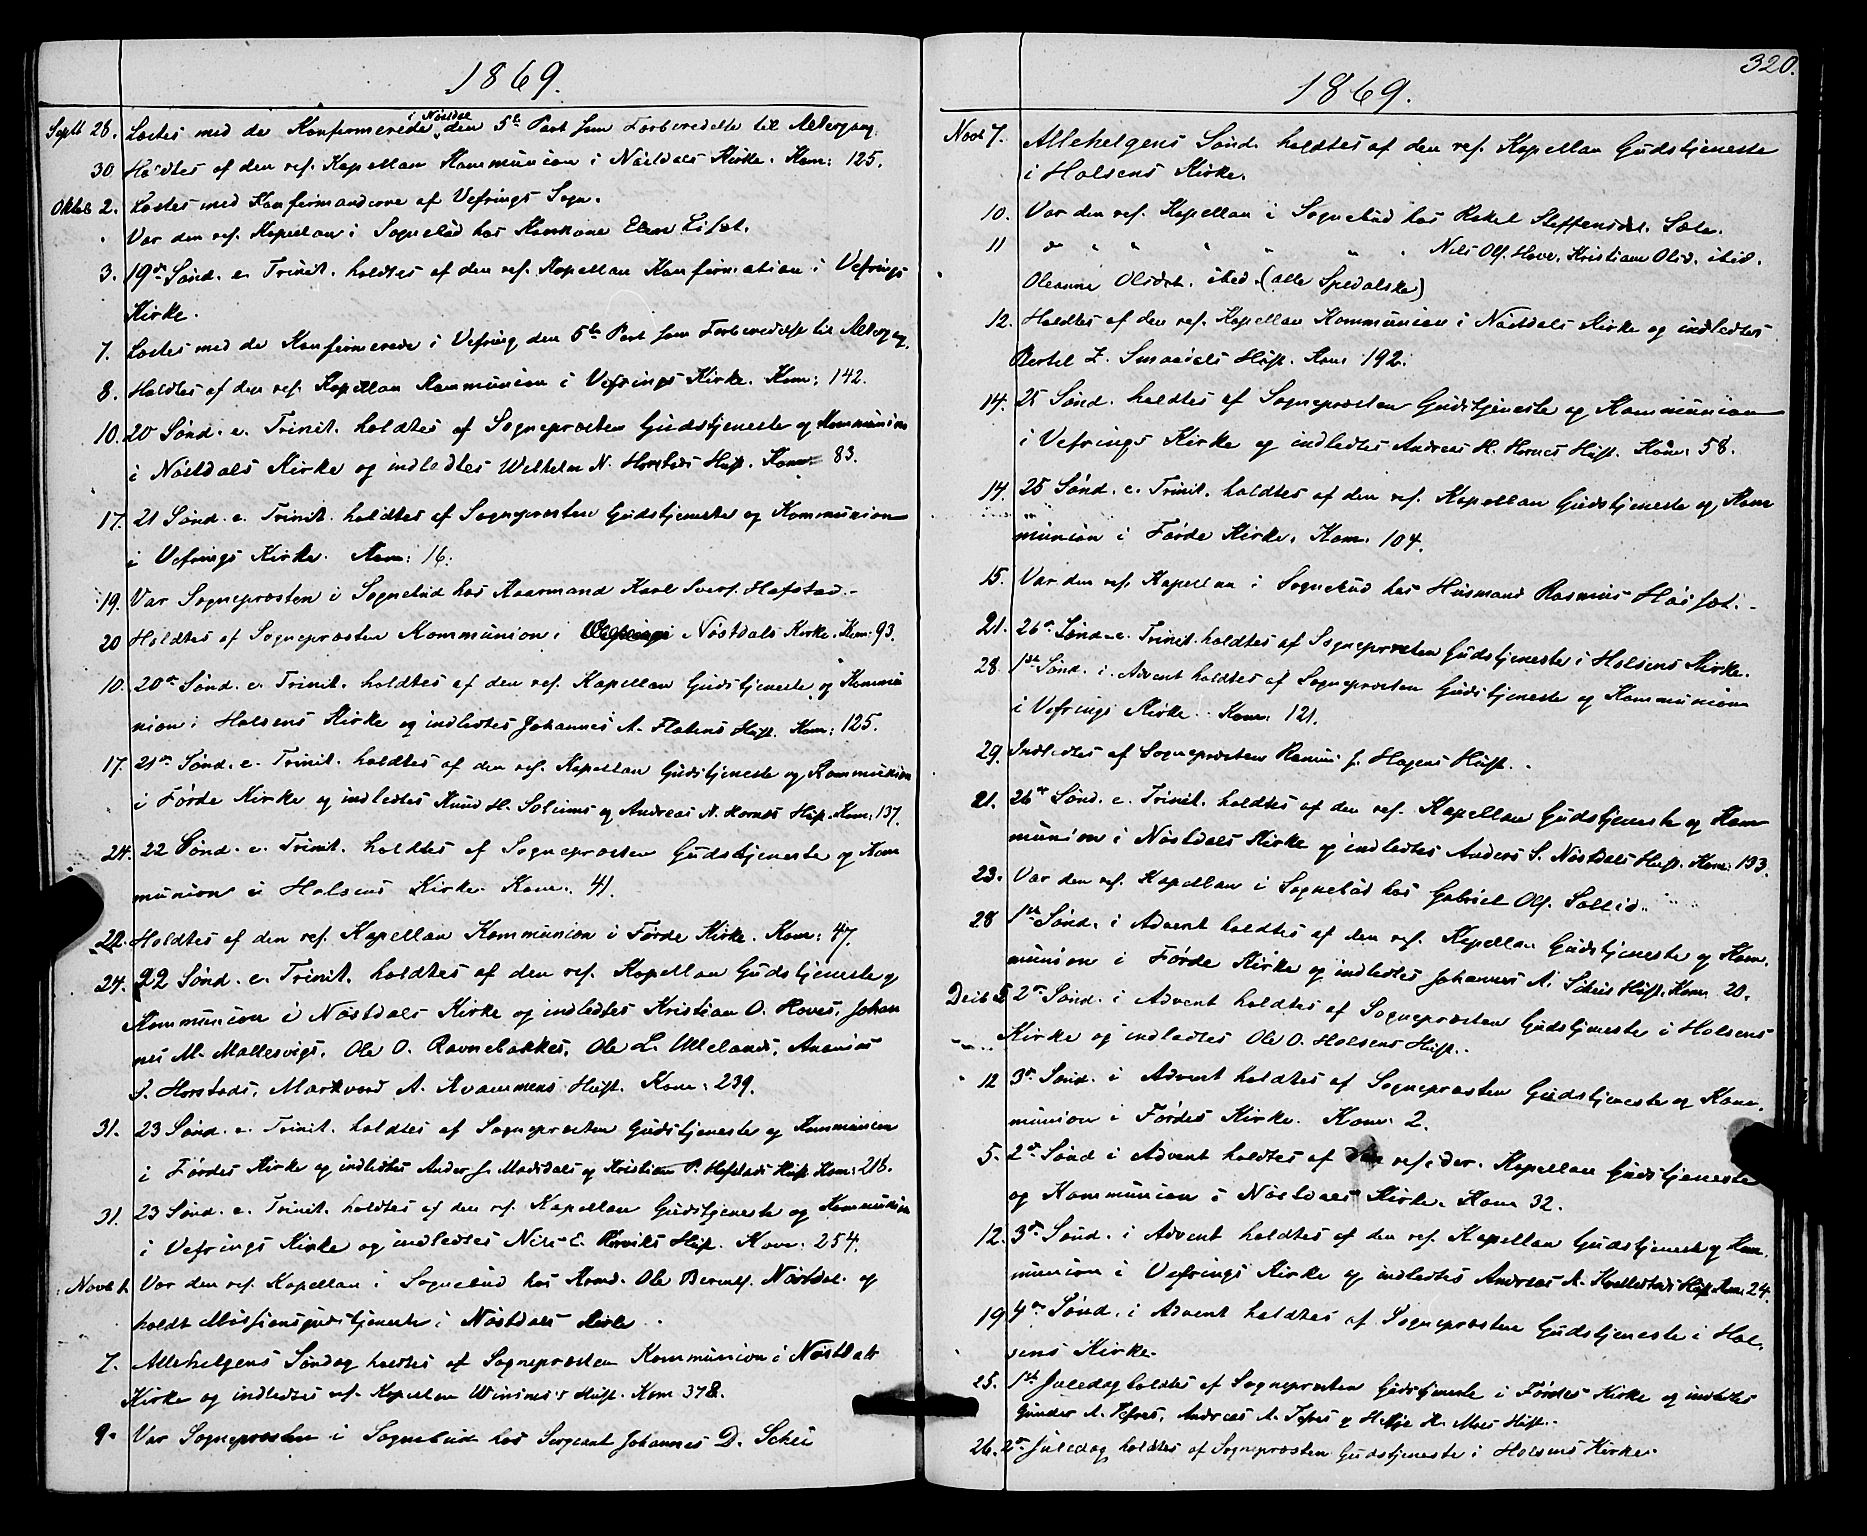 1869.
Septb 28. Læstes med de Konfirmerede i Nøstdal den 5te Part som Forberedelse til Altergang.
30 Holdtes af den res. Kapellan Kommunion i Nøstdals Kirke. Kom: 125.
Oktob 2. Læstes med Konfirmanderne af Vefrings Sogn.
Var den res. Kapellan i Sognebud hos Konkone Elen
3. 19de Sønd. e. Trinit. holdtes af den res. Kapellan Konfirmation i Vefrings
Kirke.
7. Læstes med de Konfirmerede i Vefring den 5te Part som Forberedelse til Altergang.
8. Holdtes af den res. Kapellan Kommunion i Vefrings Kirke. Kom: 142.
10. 20 Sønd. e. Trinit. holdtes af Sognepræsten Gudstjeneste og Kommunion
i Nøstdals Kirke og indledtes Wilhelm N. Horstads Hust. Kom: 83.
17. 21 Sønd. e. Trinit. holdtes af Sognepræsten Gudstjeneste og Kommunion
i Vefrings Kirke. Kom: 16.
19. Var Sognepræsten i Sognebud hos Kaarmand Karl Sivers. Hafstad.
20 Holdtes af Sognepræsten Kommunion i Nøstdals Kirke. Kom: 93.
10. 20de Sønd. e. Trinit. holdtes af den res. Kapellan Gudstjeneste og Kommu
nion i Holsens Kirke og indledtes Johannes A. Flatens Hust. Kom: 125.
17. 21de Sønd. e. Trinit. holdtes af den res. Kapellan Gudstjeneste og Kommunion
i Førde Kirke og indledtes Knud H. Soleims og Andreas N. Hornes Hust. Kom: 137.
24. 22 Sønd. e. Trinit. holdtes af Sognepræsten Gudstjeneste og Kom
munion i Holsens Kirke. Kom: 41.
22. Holdtes af den res. Kapellan Kommunion i Førde Kirke. Kom: 47.
24. 22 Sønd. e. Trinit. holdtes af den res. Kapellan Gudstjeneste og
Kommunion i Nøstdals Kirke og indledtes Kristian O. Hoves, Johan
nes M. Mallesvigs, Ole O. Ravnebakkes, Ole L. Ullelands, Ananias
S. Horstads, Markvard A. Kvammens Hust. Kom: 239.
31. 23 Sønd. e. Trinit. holdtes af Sognepræsten Gudstjeneste og Kommunion
i Førdes Kirke og indledtes Anders J. Modsdals og Kristian P. Hafstads Hust Kom: 216.
31. 23 Sønd. e. Trinit. holdtes af den res. Kapellan Gudstjeneste og Kommunion
i Vefrings Kirke og indledtes Nils E. Rørviks Hust. Kom: 254.
Novb 1. Var den res. Kapellan i Sognebud hos Kmd. Ole Berents. Nøstdal. og
holdt Missionsgudstjeneste i Nøstdals Kirke.
7. Allehelgens Søndag holdtes af Sognepræsten Kommunion i Nøstdals
Kirke og indledtes res. Kapellan Winsnes's Hust. Kom 378.
9. Var Sognepræsten i Sognebud hos Sergeant Johannes D. Schei
320.
1869.
Novb 7. Allehelgens Sønd. holdtes af den res. Kapellan Gudstjeneste
i Holsens Kirke.
10. Var den res. Kapellan i Sognebud hos Rakel Steffensdt. Sæle.
11 do " " " " " " Nils Ols. Hove, Kristiane Olsd. ibid.
Oleanne Olsdt. ibid. (alle Spedalske)
12. Holdtes af den res. Kapellan Kommunion i Nøstdals Kirke og indledtes
Bertel Z. Smaadals Hust. Kom 192.
14. 25 Sønd. holdtes af Sognepræsten Gudstjeneste og Kommunion
i Vefrings Kirke og indledtes Andreas H. Hornes Hust. Kom: 58.
14. 25 Sønd. e. Trinit. holdtes af den res. Kapellan Gudstjeneste og Kom
munion i Førde Kirke. Kom. 104.
15. Var den res. Kapellan i Sognebud hos Husmand Rasmus
21. 26de Sønd. e. Trinit. holdtes af Sognepræsten Gudstjeneste i Holsens Kirke.
28. 1ste Sønd. i Advent holdtes af Sognepræsten Gudstjeneste og Kommunion
i Vefrings Kirke. Kom: 121.
29. Indledtes af Sognepræsten Rasmus J. Hagens Hust.
21. 26de Sønd. e. Trinit. holdtes af den res. Kapellan Gudstjeneste og Kom
munion i Nøstdals Kirke og indledtes Anders S. Nøstdals Hust. Kom: 133.
23. Var den res. Kapellan i Sognebud hos Gabriel Ols. Solheid.
28 1ste Sønd. i Advent holdtes af den res. Kapellan Gudstjeneste og Kom.
munion i Førde Kirke og indledtes Johannes A. Scheis Hust. Kom 20.
Decb 5 2den Sønd. i Advent holdtes af Sognepræsten Gudstjeneste i Holsens
Kirke og indledtes Ole O. Holsens Hust.
12 3de Sønd. i Advent holdtes af Sognepræsten Gudstjeneste og Kom.
munion i Førdes Kirke. Kom: 2.
5. 2den Sønd i Advent holdtes af den resider. Kapellan Gudstjeneste
og Kommunion i Nøstdals Kirke. Kom 32.
12. 3de Sønd. i Advent holdtes af den res. Kapellan Gudstjeneste og Kom.
munion i Vefrings Kirke og indledtes Andreas A. Kvellestads Hust Kom: 24.
19 4de Sønd. i Advent holdtes af Sognepræsten Gudstjeneste i Hol.
sens Kirke.
25. 1ste Juledag holdtes af Sognepræsten Gudstjeneste i Førdes Kirke og indledtes
Gunder A. Tefres, Andreas A. Tefres og Helje H. Moes Hust.
26. 2den Juledag holdtes af Sognepræsten Gudstjeneste i Holsens Kirke.